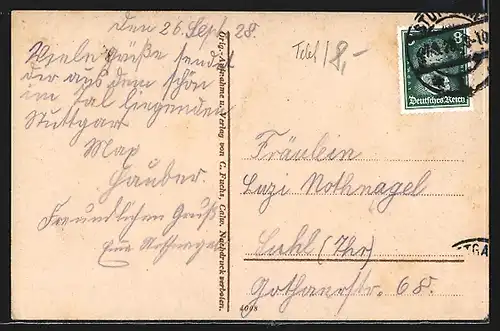 Den 26. Sept. 28.
Viele Grüße sendet
der aus dem schön
im Tal liegenden
Stuttgart
Max
Hauber.
Freundlichen Gruß
Nothnagel
Orig.-Aufnahme u. Verlag von C. Fuchs, Calw. Nachdruck verboten.
4098
8
Deutsches Reich
Fräulein
Luzi Nothnagel
Suhl (Thr)
Gothaerstr. 68.